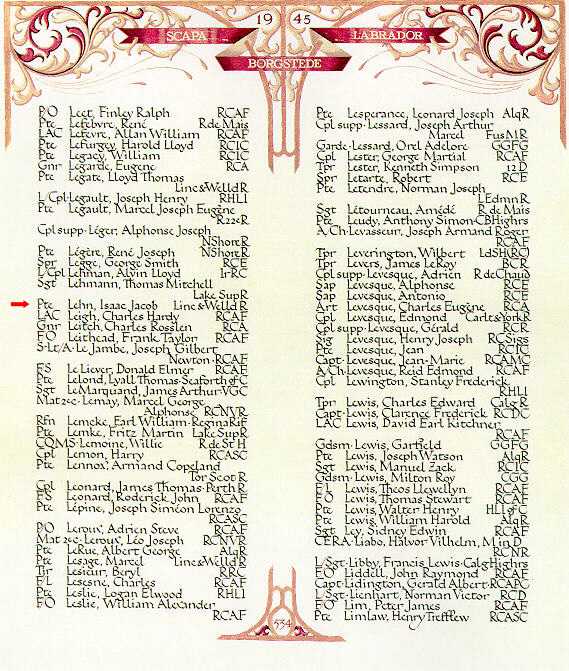 1945
SCAPA
LABRADOR
BORGSTEDE
P/O Leet, Finley Ralph RCAF
Pte Lefebvre, René R de Mais
LAC Lefevre, Allan William RCAF
Pte Lefurgey, Harold Lloyd RCIC
Pte Legacy, William RCIC
Gnr Legarde, Eugene RCA
Pte Legate, Lloyd Thomas
Linc&Welld R
L/Cpl·Legault, Joseph Henry RHLI
Pte Legault, Marcel Joseph Eugene
R22eR
Cpl supp·Léger, Alphonse Joseph
NShoreR
Pte Légère, René Joseph NShoreR
Spr Legge, George Smith RCE
L/Cpl Lehman, Alvin Lloyd IrRC
Sgt Lehmann, Thomas Mitchell
Lake Sup R
Pte Lehn, Isaac Jacob Linc&Welld R
LAC Leigh, Charles Hardy RCAF
Gnr Leitch, Charles Rosslen RCA
F/O Leithead, Frank Taylor RCAF
S·Lt/A·Le Jambe, Joseph Gilbert
Newton·RCAF
F/S Le Liever, Donald Elmer RCAF
Pte Lelond, Lyall Thomas·Seaforth of C
Sgt LeMarquand, James Arthur·VGC
Mat 2·c·Lemay, Marcel George
Alphonse RCNVR
Rfn Lemcke, Earl William·Regina Rif
Pte Lemke, Fritz Martin Lake Sup R
CQMS·Lemoine, Willie R de St H
Cpl Lemon, Harry RCASC
Pte Lennox, Armand Copeland
Tor Scot R
Cpl Leonard, James Thomas·Perth R
F/S Leonard, Roderick John RCAF
Pte Lépine, Joseph Siméon Lorenzo
RCASC
P/O Leroux, Adrien Steve RCAF
Mat 2·c·Leroux, Léo Joseph RCNVR
Pte LeRue, Albert George AlqR
Pte Lesage, Marcel Linc&Welld R
Tpr Lesieur, Beryl RRC
F/L Lesesne, Charles RCAF
Pte Leslie, Logan Elwood RHLI
F/O Leslie, William Alexander
RCAF
Pte Lesperance, Leonard Joseph AlqR
Cpl supp·Lessard, Joseph Arthur
Marcel Fus M R
Garde·Lessard, Orel Adelore GGFG
Cpl Lester, George Martial RCAF
Tpr Lester, Kenneth Simpson 12 D
Spr Letarte, Robert RCE
Pte Letendre, Norman Joseph
LEdmn R
Sgt Létourneau, Amédé R de Mais
Pte Leudy, Anthony Simon·CBHighrs
A/Ch·Levasseur, Joseph Armand Roger
RCAF
Tpr Leverington, Wilbert LdSH(RC)
Tpr Levers, James LeRoy BCR
Cpl supp·Levesque, Adrien R de Chaud
Sap Levesque, Alphonse RCE
Sap Levesque, Antonio RCE
Art Levesque, Charles Eugène RCA
Cpl Levesque, Edmond Carlt&York R
Cpl supp·Levesque, Gérald CR
Sig Levesque, Henry Joseph RCSigs
Pte Levesque, Jean RCIC
Capt·Levesque, Jean·Marie RCAMC
A/Ch·Levesque, Reid Edmond RCAF
Cpl Lewington, Stanley Frederick
RHLI
Tpr Lewis, Charles Edward Calg R
Capt·Lewis, Clarence Frederick RCDC
LAC Lewis, David Earl Kitchner
RCAF
Gdsm·Lewis, Garfield GGFG
Pte Lewis, Joseph Watson AlqR
Sgt Lewis, Manuel Zack RCIC
Gdsm·Lewis, Milton Roy CGG
F/L Lewis, Theos Llewellyn RCAF
F/O Lewis, Thomas Stewart RCAF
Pte Lewis, Walter Henry HLI of C
Pte Lewis, William Harold AlqR
Sgt Ley, Sidney Edwin RCAF
CERA·Liabo, Halvor Vilhelm, M in D
RCNR
L/Sgt·Libby, Francis Lewis·Calg Highrs
F/O Liddell, John Raymond RCAF
Capt·Lidington, Gerald Albert·RCAPC
L/Sgt·Lienhart, Norman Victor RCD
F/O Lim, Peter James RCAF
Pte Limlaw, Henry Trefflew RCASC
534